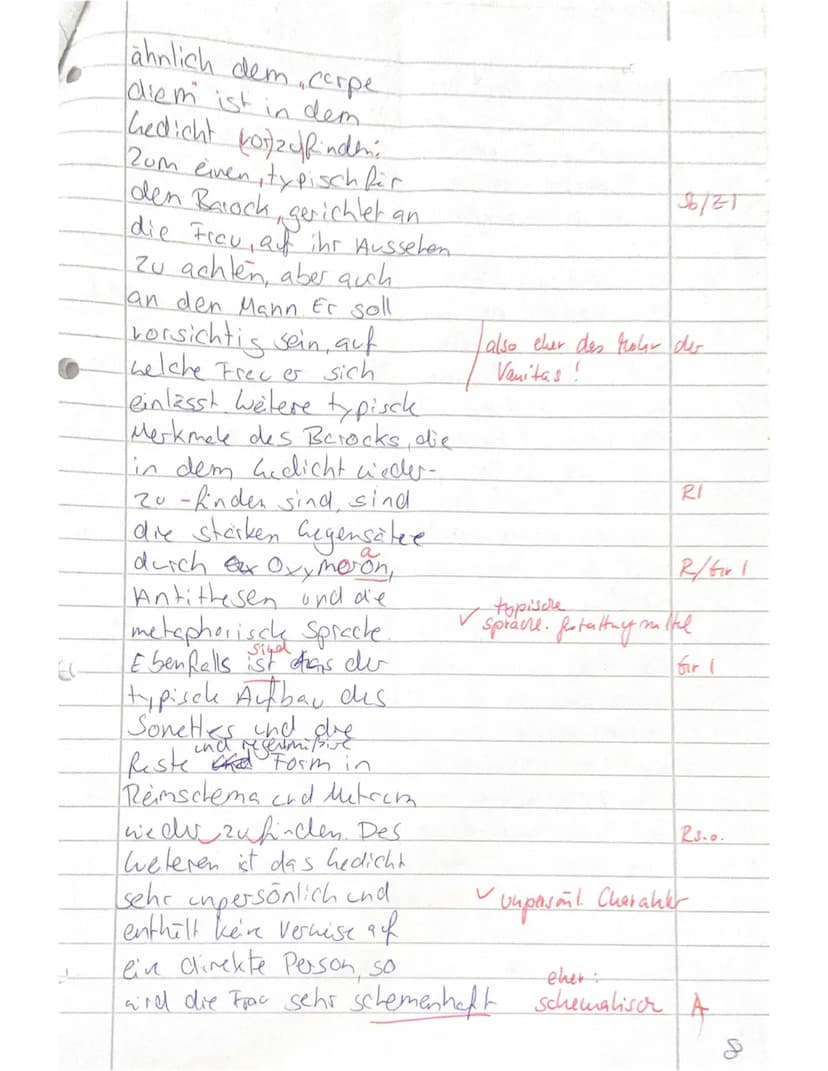 ähnlich dem „carpe
diem" ist in dem
Gedicht (vor)zufinden:
Zum einen, typisch für
den Barock, gerichtet an So/Z I
die Frau, auf ihr Aussehen
zu achten, aber auch
an den Mann. Er soll
vorsichtig sein, auf also eher das Motiv der
welche Frau er sich Vanitas!
einlässt. Weitere typisch
Merkmale des Barocks, die
in dem Gedicht wieder-
zu-finden sind, sind R I
die starken Gegensätze
a
durch Oxymoron, R/Gr I
Antithesen und die typische
metaphorische Sprache. ✓ sprachl. Gestaltungsmittel
sind
Ebenfalls ist das der Gr I
typische Aufbau des
Sonettes und die
und
feste Form in
Reimschema und Metrum
wieder zu finden. Des R s.o.
Weiteren ist das Gedicht
sehr unpersönlich und ✓ unpersönl. Charakter
enthält keine Verweise auf
eine direkte Person, so eher:
wird die Frau sehr schemenhaft schematisch A
8